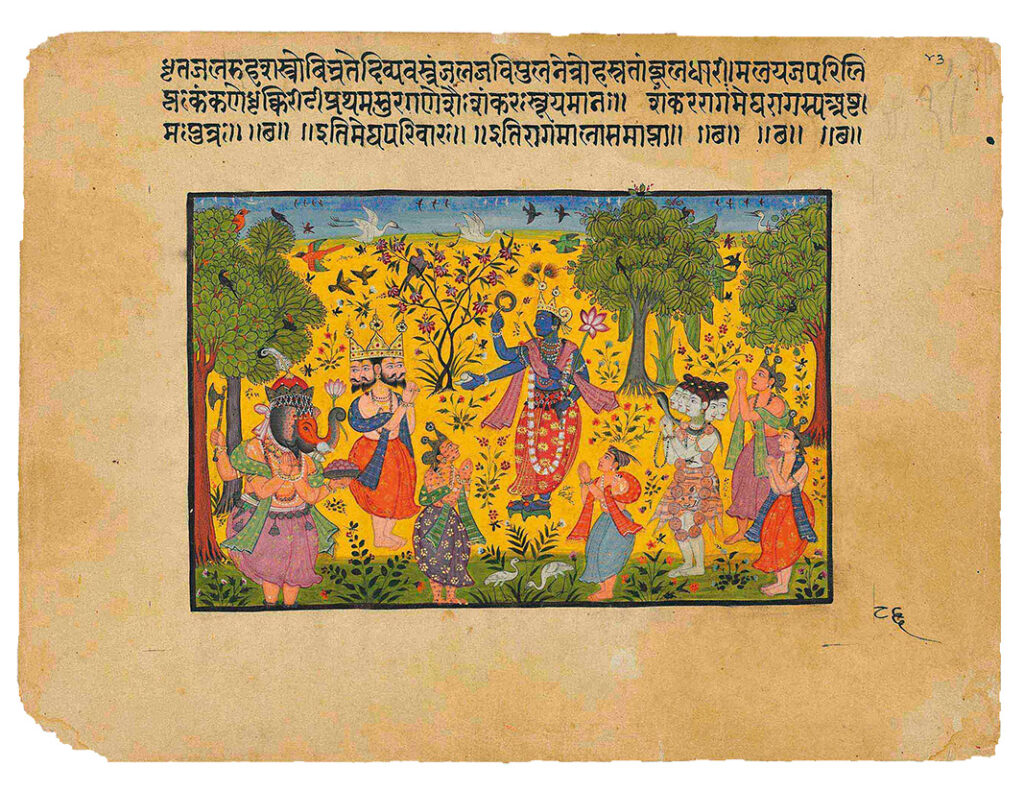 ४३
धृतजलरुहशस्त्रोविव्रतेदिव्यवस्त्रंजलजविपुलनेत्रोहस्ततांबूलधारी।मलयजपरिलि
प्रथमसुरगणेशैःशंकरःस्तूयमानः॥ शंकररागमेघरागस्याष्ट
मःपुत्रः॥ ॥छ॥ ॥इतिमेघपरिवारः॥ ॥इतिरागमालासमाप्ता॥ ॥छ॥ ॥छ॥ ॥छ॥
८६